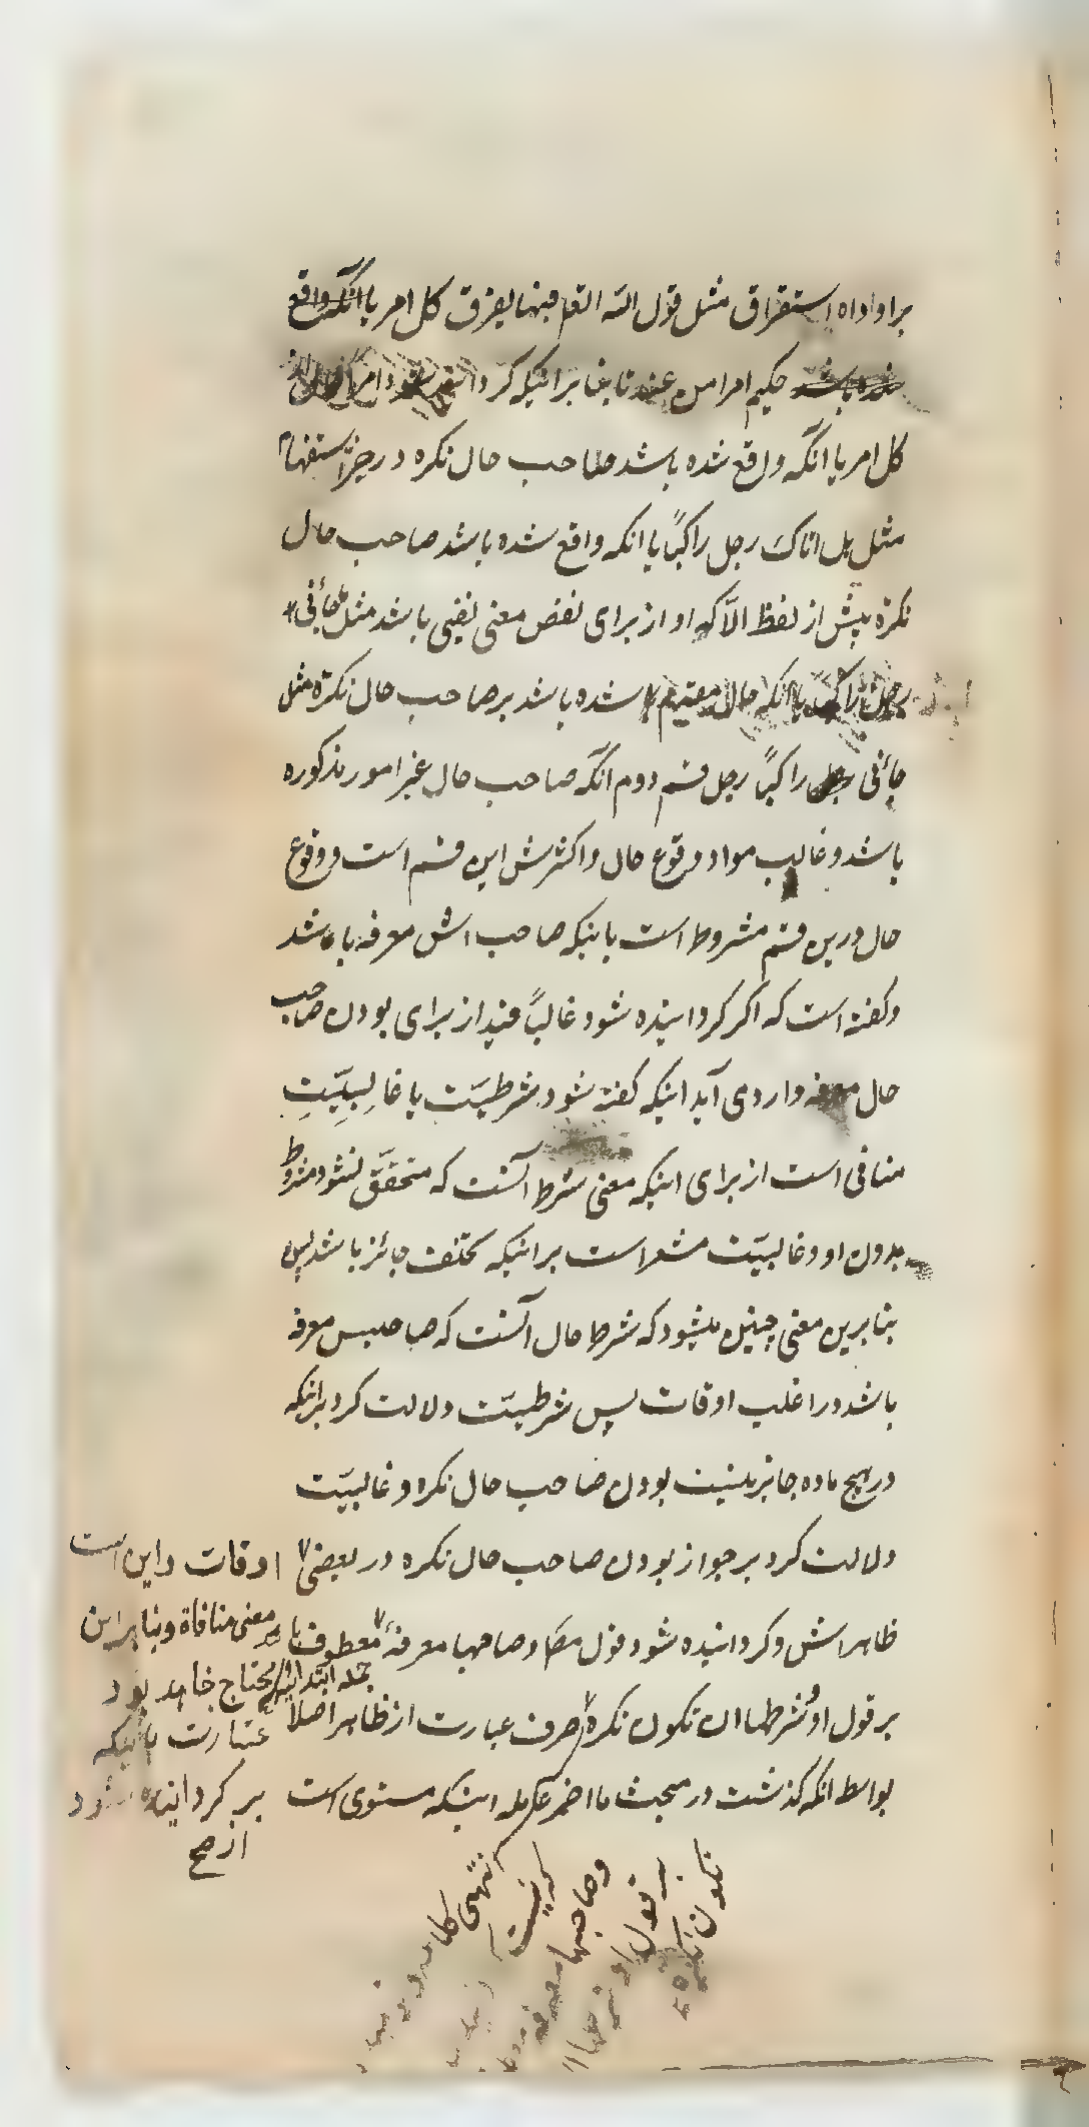 براو اداه استغراق مثل قول الله تعم فیها یفرق کل امر یا آنکه واقع
شده باشد حکیم امرا من عندنا بنا بر اینکه گردانیده شود امرا حال از
کل امر یا آنکه واقع شده باشد صاحب حال نکره در حیّز استفهام
مثل هل اتاک رجل راکباً یا آنکه واقع شده باشد صاحب حال
نکره پیش از لفظ الاّ که او از برای نقض معنی نفی باشد مثل ما جائنی
رجل الا راکباً یا آنکه حال مقدم شده باشد بر صاحب حال نکره مثل
جائنی راکباً رجل قسم دوم آنکه صاحب حال غیر امور مذکوره
باشد و غالب مواد وقوع حال و اکثرش این قسم است و وقوع
حال درین قسم مشروط است باینکه صاحب اش معرفه باشد
و گفته است که اگر گردانیده شود غالباً قید از برای بودن صاحب
حال معرفه وارد می آید اینکه گفته شود شرطیّت با غالِبیّتِ
منافی است از برای اینکه معنی شرط آنست که متحقّق نشود مشروط
بدون او و غالبیّت مشعر است بر اینکه تخلف جائز باشد پس
بنابرین معنی چنین میشود که شرط حال آنست که صاحبش معرفه
باشد در اغلب اوقات پس شرطیّت دلالت کرد بر اینکه
در هیچ ماده جایز نیست بودن صاحب حال نکره و غالبیّت
دلالت کرد بر جواز بودن صاحب حال نکره در بعضی اوقات و این است
ظاهرش و گردانیده شود قول مصـ و صاحبها معرفة معطوف با معنی منافاة و بنا بر این
جمله ابتدائیه محتاج خواهد بود
بر قول او و شرطها ان تکون نکرة صرف عبارت از ظاهر اصلا عبارت باینکه
بواسطه آنکه گذشت در مبحث ما اضمر عامله اینکه مستوی است بر گردانیده شود
از صح
انتهی کلامه
که نیست
و صاحبها معرفة
بر قول او و شرطها ان
تکون نکرة